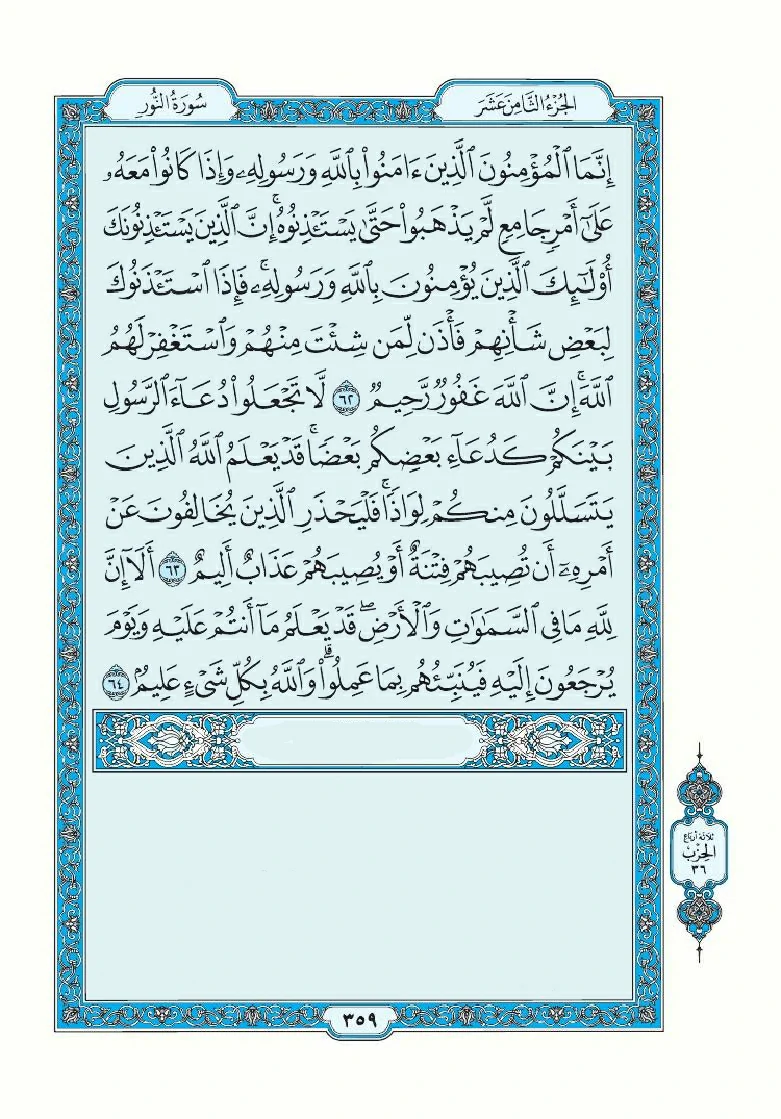 الجزء الثامن عشر
سورة النور
إِنَّمَا ٱلْمُؤْمِنُونَ ٱلَّذِينَ ءَامَنُوا۟ بِٱللَّهِ وَرَسُولِهِۦ وَإِذَا كَانُوا۟ مَعَهُۥ
عَلَىٰٓ أَمْرٍ جَامِعٍ لَّمْ يَذْهَبُوا۟ حَتَّىٰ يَسْتَـْٔذِنُوهُ ۚ إِنَّ ٱلَّذِينَ يَسْتَـْٔذِنُونَكَ
أُو۟لَـٰٓئِكَ ٱلَّذِينَ يُؤْمِنُونَ بِٱللَّهِ وَرَسُولِهِۦ ۚ فَإِذَا ٱسْتَـْٔذَنُوكَ
لِبَعْضِ شَأْنِهِمْ فَأْذَن لِّمَن شِئْتَ مِنْهُمْ وَٱسْتَغْفِرْ لَهُمُ
ٱللَّهَ ۚ إِنَّ ٱللَّهَ غَفُورٌ رَّحِيمٌ ٦٢ لَّا تَجْعَلُوا۟ دُعَآءَ ٱلرَّسُولِ
بَيْنَكُمْ كَدُعَآءِ بَعْضِكُم بَعْضًا ۚ قَدْ يَعْلَمُ ٱللَّهُ ٱلَّذِينَ
يَتَسَلَّلُونَ مِنكُمْ لِوَاذًا ۚ فَلْيَحْذَرِ ٱلَّذِينَ يُخَالِفُونَ عَنْ
أَمْرِهِۦٓ أَن تُصِيبَهُمْ فِتْنَةٌ أَوْ يُصِيبَهُمْ عَذَابٌ أَلِيمٌ ٦٣ أَلَآ إِنَّ
لِلَّهِ مَا فِى ٱلسَّمَـٰوَٰتِ وَٱلْأَرْضِ ۖ قَدْ يَعْلَمُ مَآ أَنتُمْ عَلَيْهِ وَيَوْمَ
يُرْجَعُونَ إِلَيْهِ فَيُنَبِّئُهُم بِمَا عَمِلُوا۟ ۗ وَٱللَّهُ بِكُلِّ شَىْءٍ عَلِيمٌۢ ٦٤
ثلاثة أرباع
الحزب
٣٦
٣٥٩